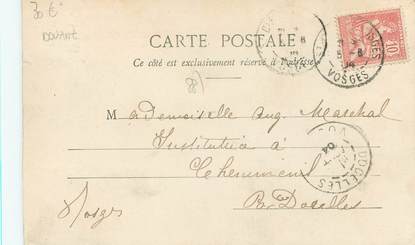 30 €
CARTE POSTALE
Ce côté est exclusivement réservé à l'adresse
Mademoiselle Aug. Maschal
Institutrice à
Cheniménil
Par Docelles
Vosges
10
VOSGES
DOCELLES